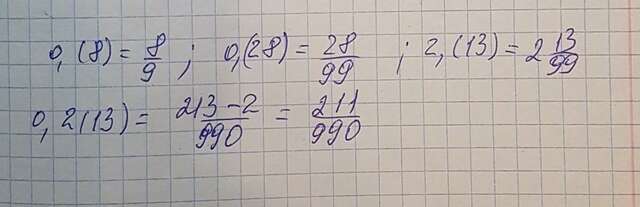 0,(8) = 8/9 ; 0,(28) = 28/99 ; 2,(13) = 2 13/99
0,2(13) = 213-2/990 = 211/990